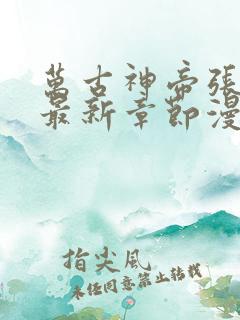 萬古神帝張
最新章節漫
指尖風
未經同意禁止轉載